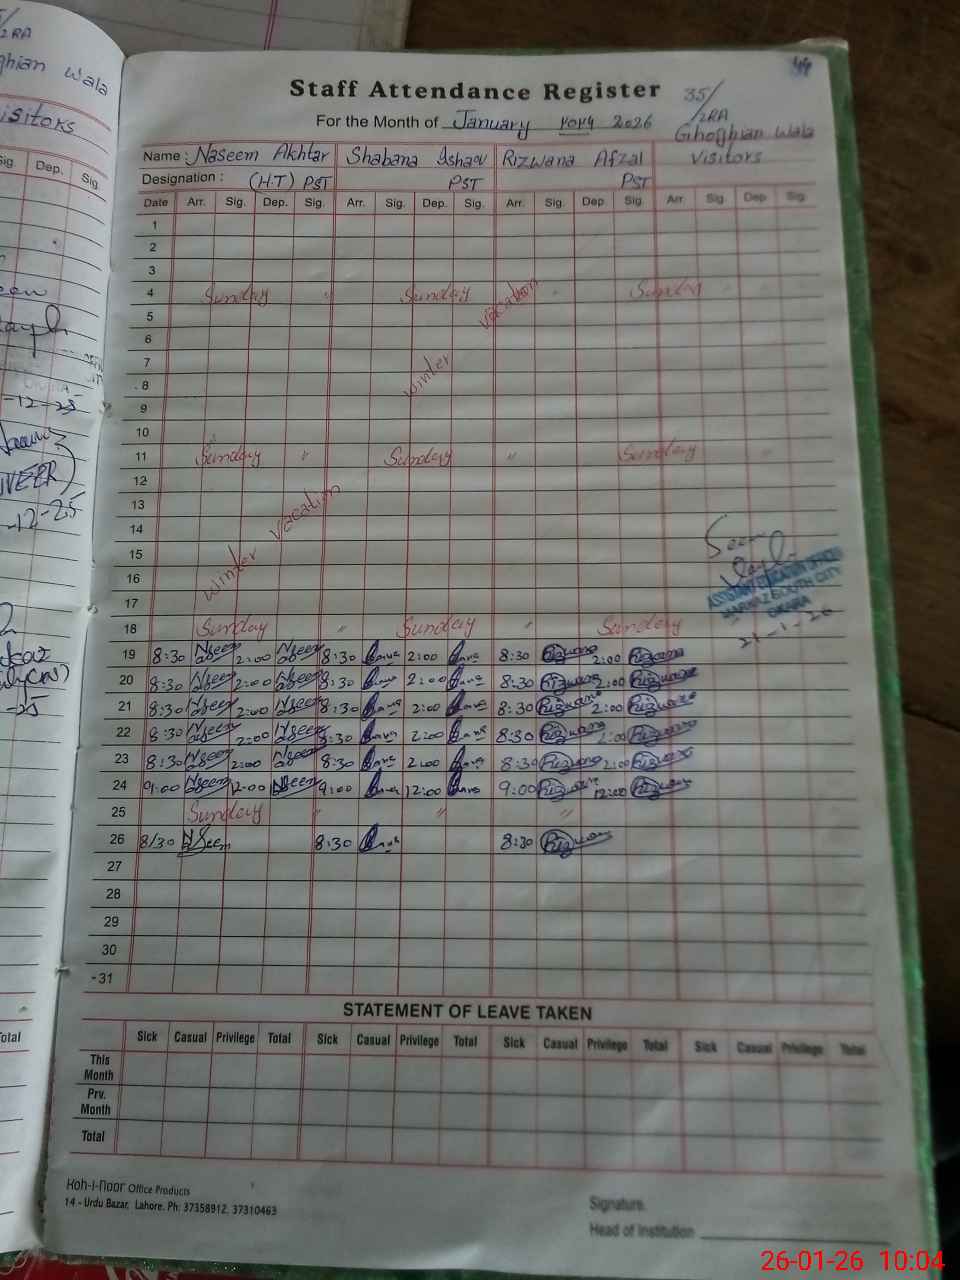 Staff Attendance Register
35/
2RA
Ghoghian Wala
For the Month of January 2026
Name : Naseem Akhtar Shabana Ishaq Rizwana Afzal Visitors
Designation : (H.T) PST PST PST
Date Arr. Sig. Dep. Sig. Arr. Sig. Dep. Sig. Arr. Sig. Dep. Sig. Arr Sig Dep Sig.
1
2
3
4 Sunday " Sunday " Sunday "
5
6
7
8
9
10
11 Sunday " Sunday " Sunday "
12
13
14
15
16
17
winter vacation
winter vacation
Seen
ASSISTANT EDUCATION OFFICER
MARKAZ SOUTH CITY
OKARA
21-1-26
18 Sunday " Sunday " Sunday
19 8:30 Naseem 2:00 Naseem 8:30 2:00 8:30 Rizwana 2:00 Rizwana
20 8:30 Naseem 2:00 Naseem 8:30 2:00 8:30 Rizwana 2:00 Rizwana
21 8:30 Naseem 2:00 Naseem 8:30 2:00 8:30 Rizwana 2:00 Rizwana
22 8:30 Naseem 2:00 Naseem 8:30 2:00 8:30 Rizwana 2:00 Rizwana
23 8:30 Naseem 2:00 Naseem 8:30 2:00 8:30 Rizwana 2:00 Rizwana
24 9:00 Naseem 12:00 Naseem 9:00 12:00 9:00 Rizwana 12:00 Rizwana
25 Sunday " " "
26 8/30 Naseem 8:30 8:30 Rizwana
27
28
29
30
31
STATEMENT OF LEAVE TAKEN
Sick Casual Privilege Total Sick Casual Privilege Total Sick Casual Privilege Total Sick Casual Privilege Total
This Month
Prv. Month
Total
Koh-i-noor Office Products
14 - Urdu Bazar, Lahore. Ph: 37358912, 37310463
Signature.
Head of Institution
26-01-26 10:04